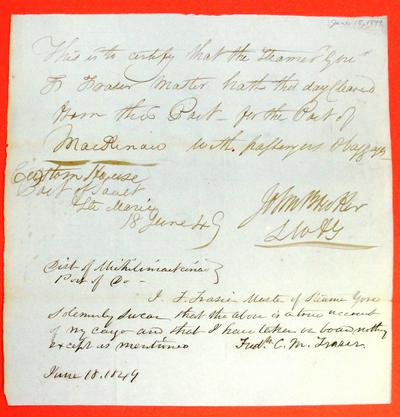 June 18, 1849
This is to certify that the Steamer Gore
F Fraser Master hath this day Cleared
from this Port - for the Port of
Mackinaw with passengers & baggage
Custom House
Port of Sault
Ste Marie
18 June 49
John
Dist of Michilimackinac
Port of Do -
I. F. Frasier Master of Steame Gore
Solemnly Swear that the above is a true account
of my cargo and that I have taken on board nothing
except as mentioned Fredk. C. M. Fraser
June 18. 1849